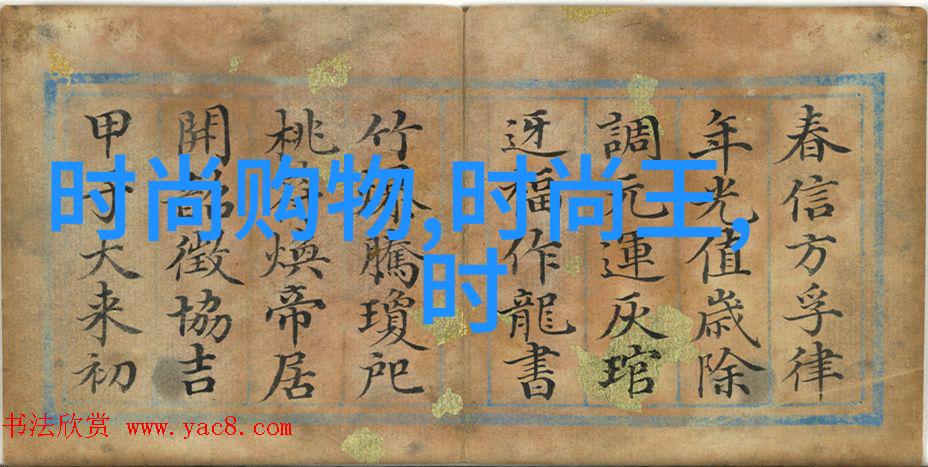 春信方孚律
年光值歲除
調元運灰琯
迓福作龍書
竹騰瓊戺
桃煥帝居
開徵協吉
甲大来初
时尚购物,时尚王,
时
书法欣赏 www.yac8.com